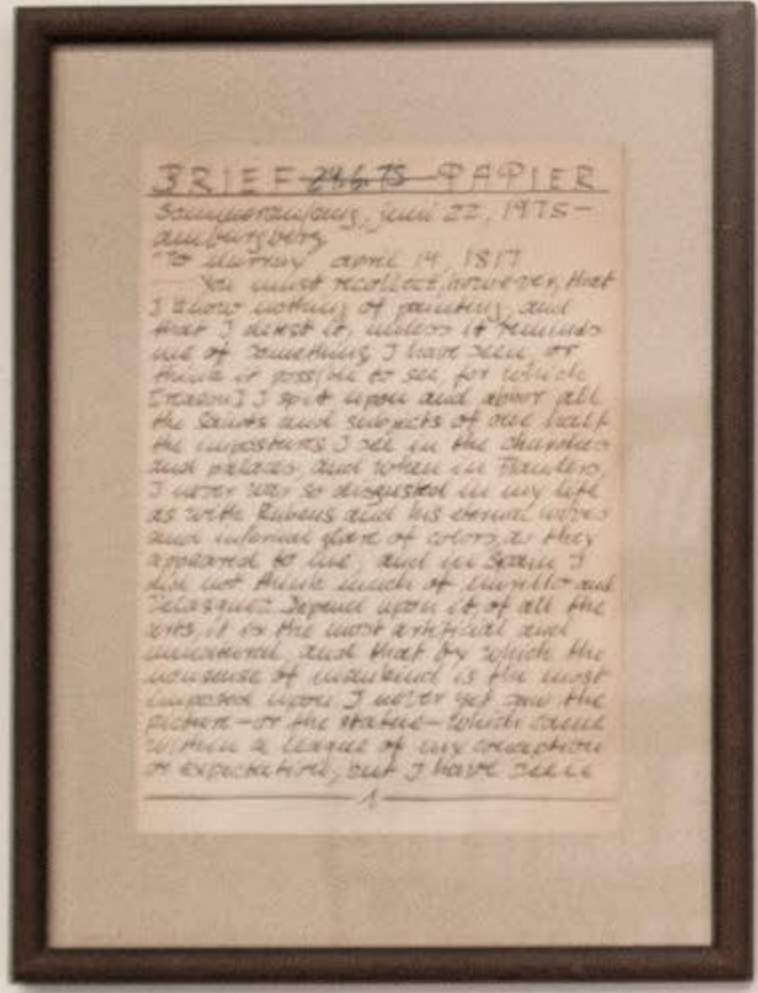 BRIEF 24.6.75 PAPIER
Sommeranfang, juni 22, 1975 –
amburgberg
To Murray april 14, 1817
You must recollect, however, that
I know nothing of painting, and
that I detest it, unless it reminds
me of something I have seen, or
think it possible to see, for which
[reason] I spit upon and abhor all
the Saints and subjects of one half
the impostures I see in the churches
and palaces, and when in Flanders,
I never was so disgusted in my life
as with Rubens and his eternal wives
and infernal glare of colors, as they
appeared to me, and in Spain I
did not think much of Murillo and
Velasquez. Depend upon it, of all the
arts, it is the most artificial and
unnatural, and that by which the
nonsense of mankind is the most
imposed upon. I never yet saw the
picture – or the statue – which came
within a league of my conception
or expectation, but I have seen
1